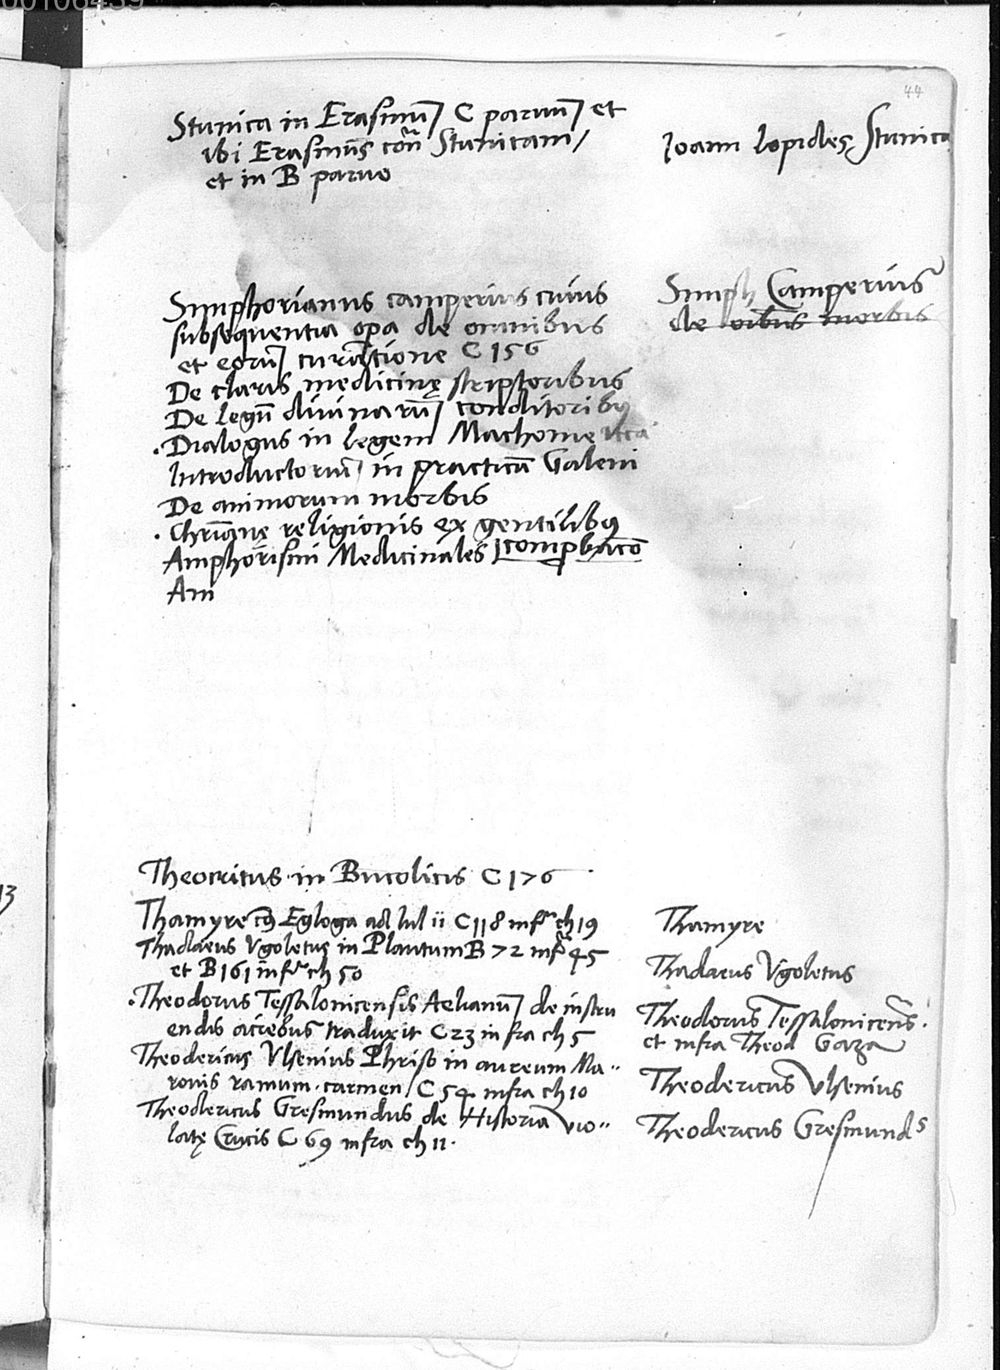 00106439
44
Stunica in Erasmū C paruū et
ibi Erasmus cōn Stunicam /
et in B paruo
Ioann Lopides Stunica
Simphorianus camperius cuius
subsequentia opa de omnibus
et eorū curatione C 156
De claris medicinę scriptoribus
De legū diuinarū conditoribus
. Dialogus in legem Machometica
Introductoriū in practicā Galeni
De animorum morbis
. Chrianę religionis ex gentilibus
Amphorismi Medicinales
Am
Simph Camperius
de oibus morbis
Theocritus in Bucolicis C 176
Thamyre Egloga ad Iul ii C 118 infra ch 19
Thadaeus Vgoletus in Plautum B 72 infra 45
et B 161 infra ch 50
. Theodorus Tessalonicensis Aelianū de instru
endis aciebus traduxit C 23 infra ch 5
Theodericus Vlsenius Phriso in aureum Ma
ronis ramum carmen / C 54 infra ch 10
Theodericus Gresmundus de Historia vio
latę Crucis C 69 infra ch 11 .
Thamyre
Thadaeus Vgoletus
Theodorus Tessalonicens .
et infra Theod Gaza
Theodericus Vlsenius
Theodericus Gresmunds
13